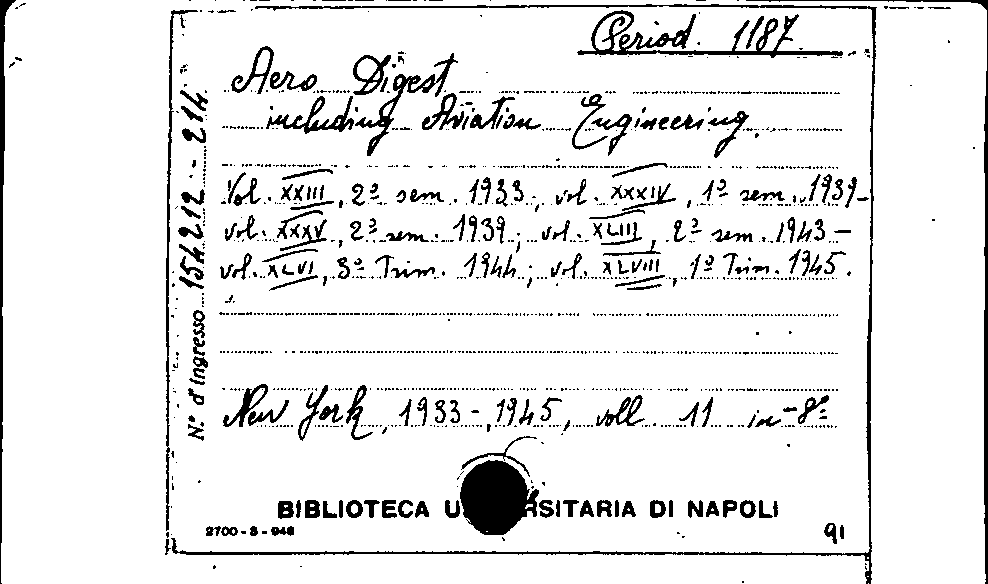 Period. 1187.
Aero Digest
including Aviation Engineering.
Vol. XXIII, 2º sem. 1933; vol. XXXIV, 1º sem. 1939–
vol. XXXV, 2º sem. 1939; vol. XLIII, 2º sem. 1943 –
vol. XLVI, 3º Trim. 1944; vol. XLVIII, 1º Trim. 1945.
New York, 1933-1945, voll. 11 in-8º
N.º d'ingresso 154212 - 214
BIBLIOTECA U RSITARIA DI NAPOLI
2700-S-948
91